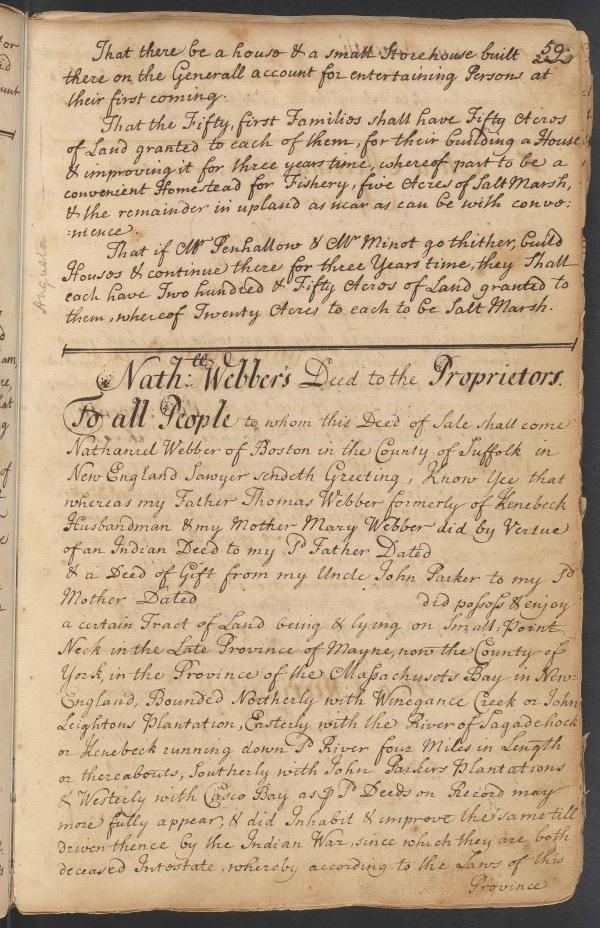 59.
That there be a house & a small Storehouse built
there on the Generall account for entertaining Persons at
their first coming.
That the Fifty, first Families shall have Fifty Acres
of Land granted to each of them, for their building a House
& improving it for three years time, whereof part to be a
convenient Homestead for Fishery, five Acres of Salt Marsh,
& the remainder in upland as near as can be with conve:
:nience.
That if Mr. Penhallow & Mr. Minot go thither, build
Houses & continue there for three Years time, they Shall
each have Two hundred & Fifty Acres of Land granted to
them, whereof Twenty Acres to each to be Salt Marsh.
Nath:ll Webber's Deed to the Proprietors.
To all People to whom this Deed of Sale shall come
Nathaniel Webber of Boston in the County of Suffolk in
New England Sawyer sendeth Greeting, Know Yee that
whereas my Father Thomas Webber formerly of Kenebeck
Husbandman & my Mother Mary Webber did by Vertue
of an Indian Deed to my Sd Father Dated
& a Deed of Gift from my Uncle John Parker to my Sd
Mother Dated did possess & enjoy
a certain Tract of Land being & lying on Small=Point
Neck in the Late Province of Mayne, now the County of
York, in the Province of the Massachusets Bay in New=
England, Bounded Northerly with Winegance Creek or John
Leightons Plantation, Easterly with the River of Sagadehock
or Kenebeck running down Sd River four Miles in Length
or thereabouts, Southerly with John Parkers Plantations
& Westerly with Casco Bay as p Sd Deeds on Record may
more fully appear, & did Inhabit & improve the same till
driven thence by the Indian War, since which they are both
deceased Intestate, whereby according to the Laws of this
Province